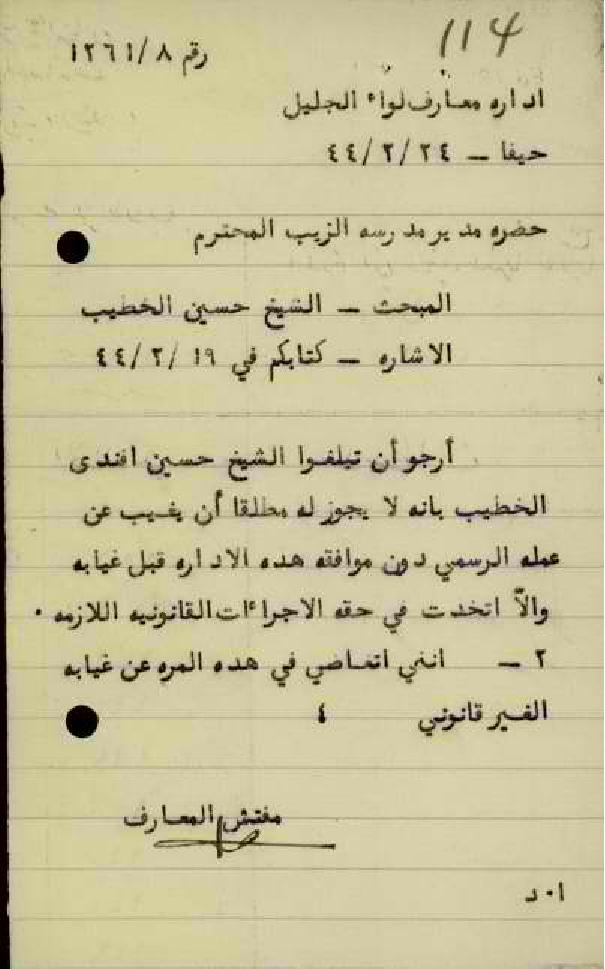 114
رقم ١٢٦١/٨
اداره معارف لواء الجليل
حيفا – ٤٤/٢/٢٤
حضره مدير مدرسه الزيب المحترم
المبحث – الشيخ حسين الخطيب
الاشاره – كتابكم في ٤٤/٢/١٩
أرجو أن تبلغوا الشيخ حسين افندى
الخطيب بانه لا يجوز له مطلقا أن يغيب عن
عمله الرسمي دون موافقه هده الاداره قبل غيابه
والاّ اتخدت في حقه الاجراءات القانونيه اللازمه .
٢ – انني اتغاضي في هده المره عن غيابه
الغير قانوني ٤
مفتش المعارف
ا ٠ د